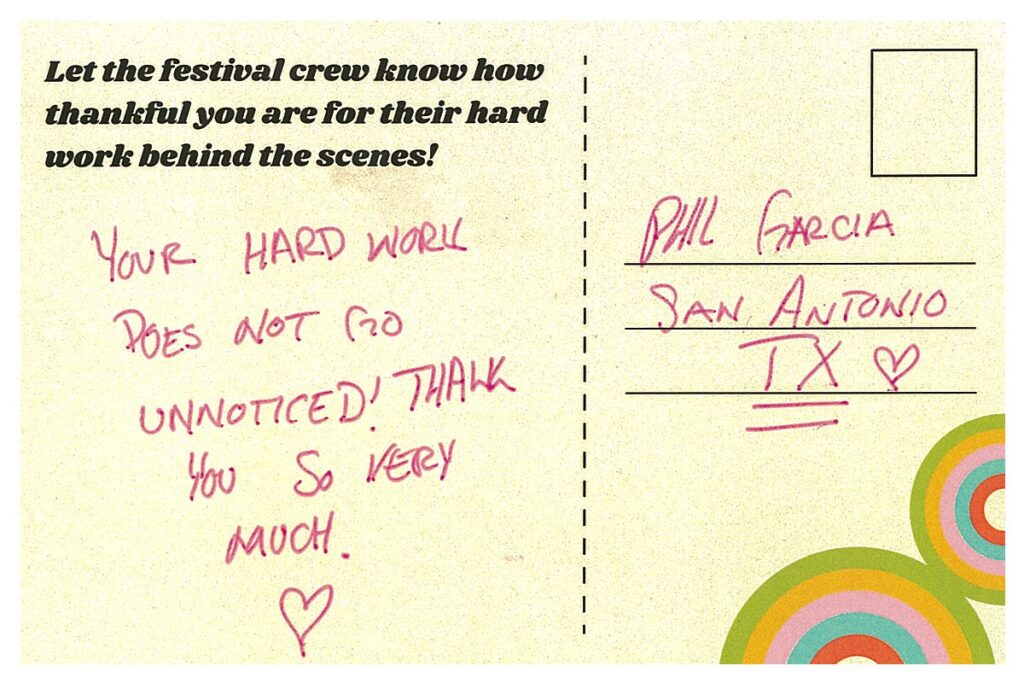 Let the festival crew know how
thankful you are for their hard
work behind the scenes!
YOUR HARD WORK
DOES NOT GO
UNNOTICED! THANK
YOU SO VERY
MUCH.
PHIL GARCIA
SAN ANTONIO
TX